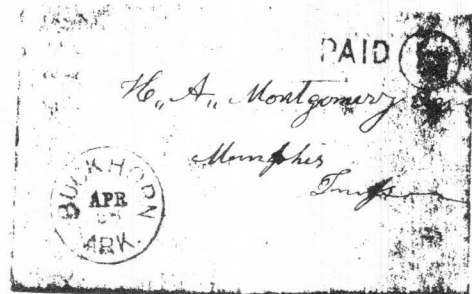 PAID
H,, A,, Montgomery Esq
Memphis
Tenn
BUCKHORN
APR
ARK